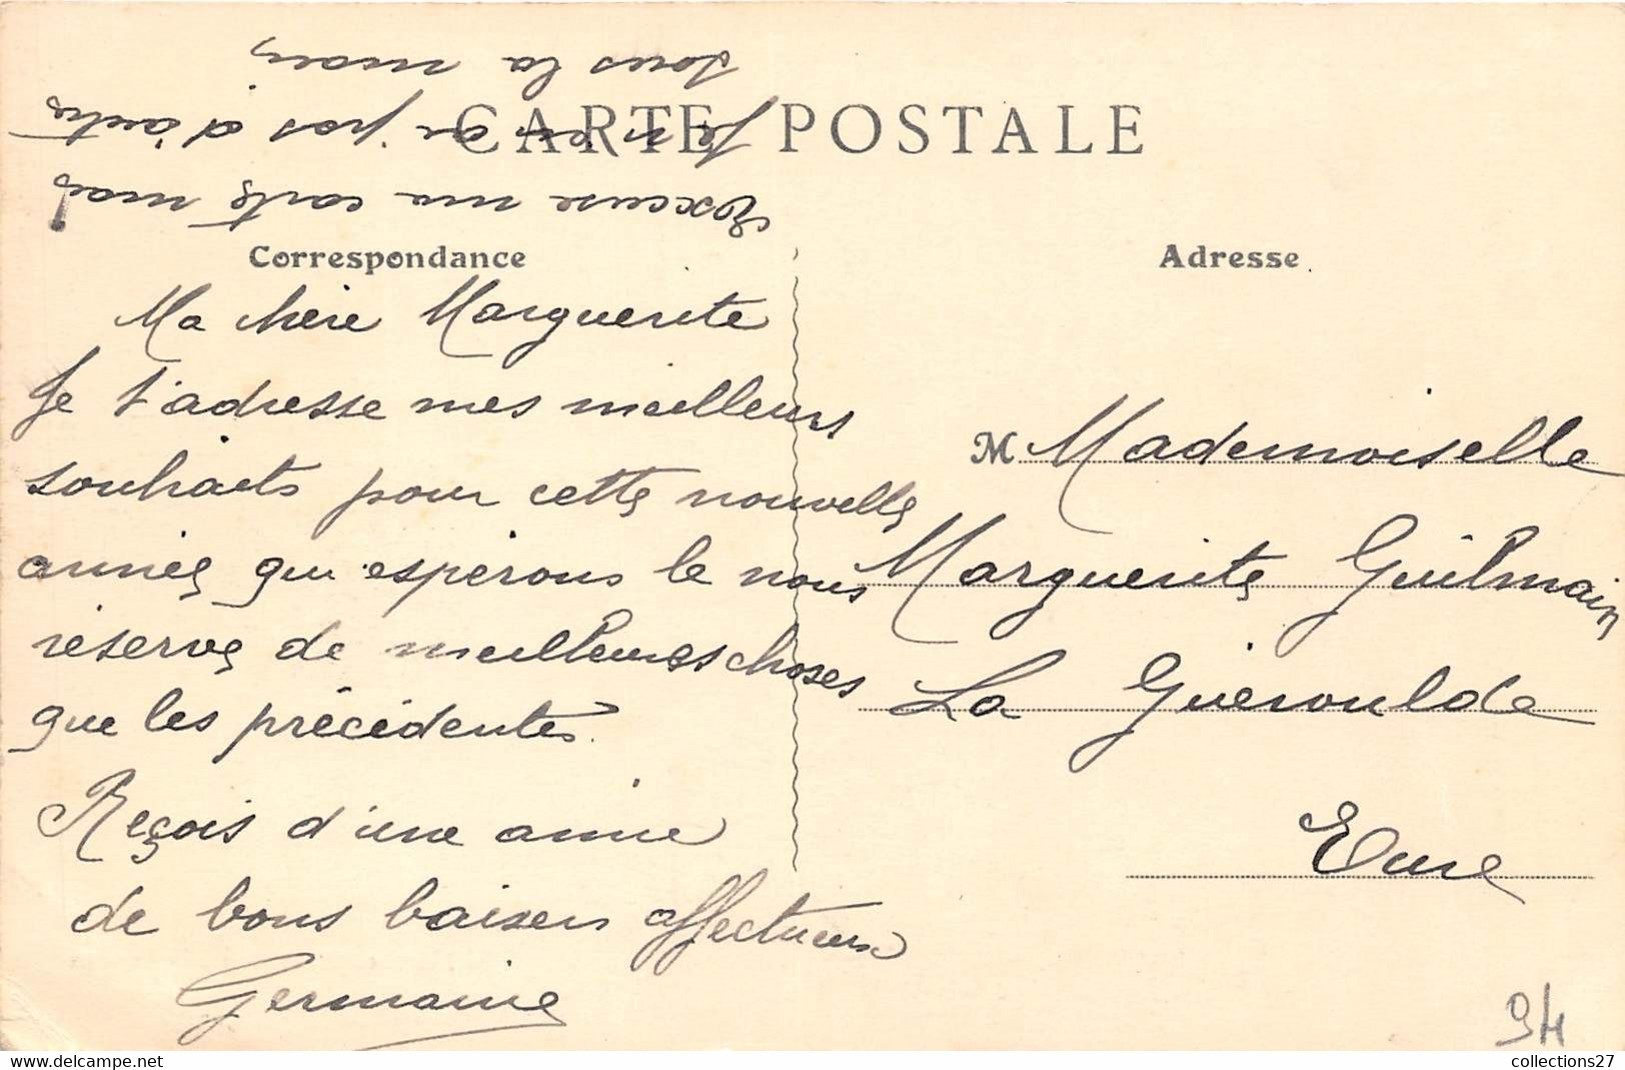 CARTE POSTALE
Excuse ma carte mais
je n'en ai pas d'autre
sous la main
Correspondance
Ma chère Marguerite
Je t'adresse mes meilleurs
souhaits pour cette nouvelle
année qui espérons le nous
réserve de meilleures choses
que les précédentes.
Reçois d'une amie
de bons baisers affectueux
Germaine
Adresse
M Mademoiselle
Marguerite Guilmain
La Guéroulde
Eure
94
collections27